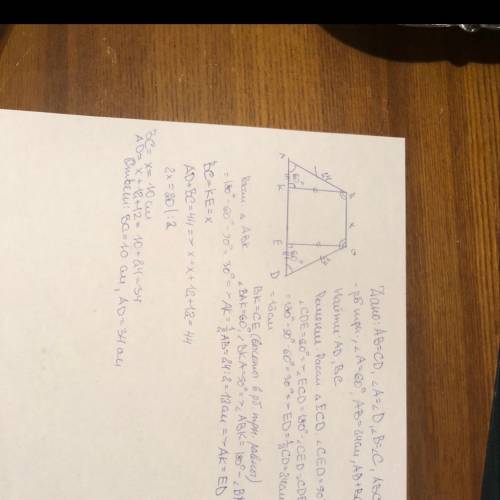 Дано: AB=CD, ∠A=∠D, ∠B=∠C, ABC
- рб трп., ∠A=60°, AB=24см, AD+B
Найти: AD, BC
Решение Расм △ ECD, ∠CED=90
∠CDE=60°=>∠ECD=180°-∠CED-∠CDE
=180°-90°-60°=30°=>ED=½CD=24см
=12см
B x C
24
A 60° K E 60° D
BK=CE (высоты в рб трп. равны)
Расм △ ABK ∠BAK=60°, ∠BKA=90°=>∠ABK=180°-∠B
=180°-60°-90°=30°=>AK=½AB=24:2=12см=>AK=ED
BC=KE=x
AD+BC=44=>x+x+12+12=44
2x=20|:2
BC=x=10см
AD=x+12+12=10+24=34
Ответ: BC=10 см, AD=34 см